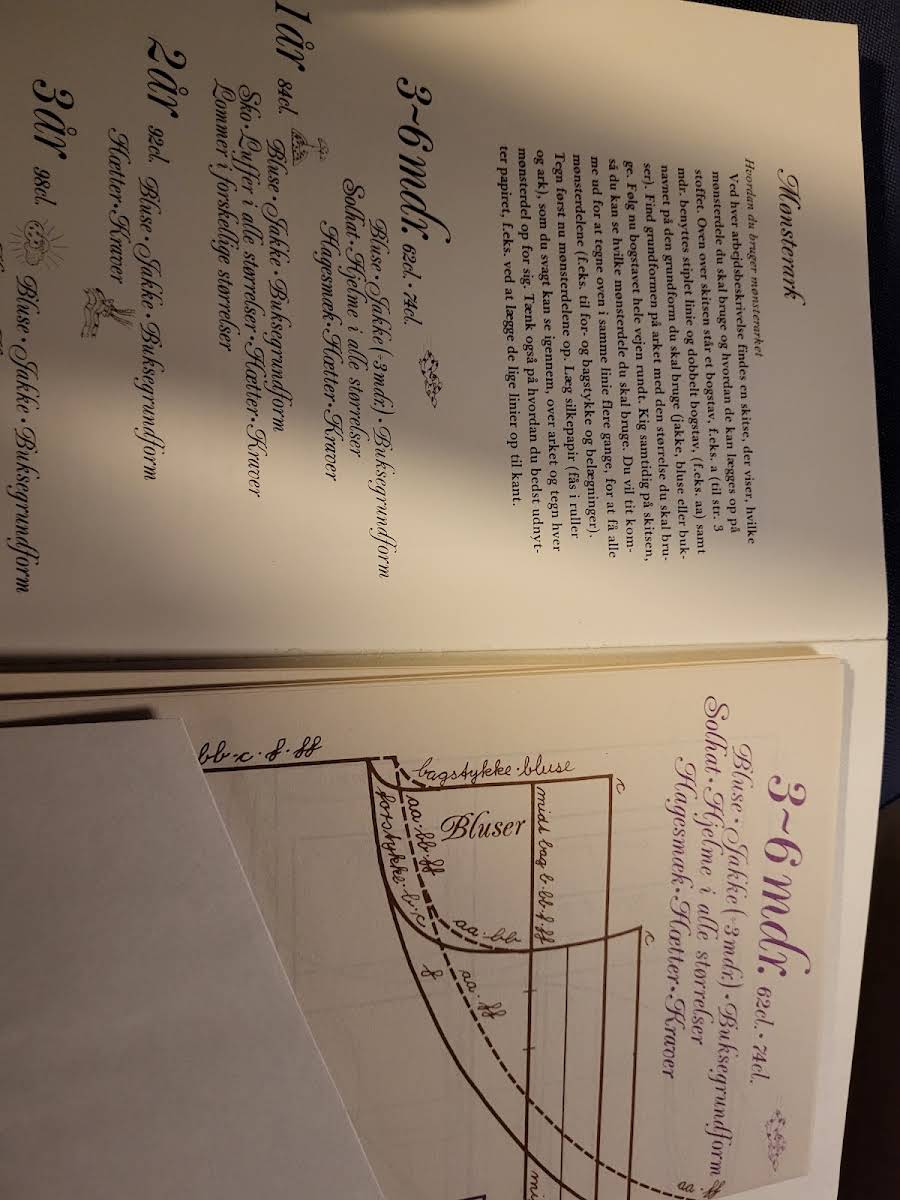 Mønsterark
Hvordan du bruger mønsterarket
Ved hver arbejdsbeskrivelse findes en skitse, der viser, hvilke
mønsterdele du skal bruge og hvordan de kan lægges op på
stoffet. Oven over skitsen står et bogstav, f.eks. a (til str. 3
mdr. benyttes stiplet linie og dobbelt bogstav, (f.eks. aa) samt
navnet på den grundform du skal bruge (jakke, bluse eller buk-
ser). Find grundformen på arket med den størrelse du skal bru-
ge. Følg nu bogstavet hele vejen rundt. Kig samtidig på skitsen,
så du kan se hvilke mønsterdele du skal bruge. Du vil tit kom-
me ud for at tegne oven i samme linie flere gange, for at få alle
mønsterdelene (f.eks. til for- og bagstykke og belægninger).
Tegn først nu mønsterdelene op. Læg silkepapir (fås i ruller
og ark), som du svagt kan se igennem, over arket og tegn hver
mønsterdel op for sig. Tænk også på hvordan du bedst udnyt-
ter papiret, f.eks. ved at lægge de lige linier op til kant.
3~6 mdr. 62cl. • 74cl.
Bluse • Jakke (÷3mdr.) • Buksegrundform
Solhat • Hjelme i alle størrelser
Hagesmæk • Hætter • Kraver
1 år 84cl. Bluse • Jakke • Buksegrundform
Sko • Luffer i alle størrelser • Hætter • Kraver
Lommer i forskellige størrelser
2 år 92cl. Bluse • Jakke • Buksegrundform
Hætter • Kraver
3 år 98cl. Bluse • Jakke • Buksegrundform
3~6 mdr. 62cl. • 74cl.
Bluse • Jakke (÷3mdr.) • Buksegrundform
Solhat • Hjelme i alle størrelser
Hagesmæk • Hætter • Kraver
c
c
midt bag b•bb•f•ff
bagstykke•bluse
Bluser
aa•bb
aa•bb•ff
forstykke•b•c
aa•ff
f
bb•c•f•ff
aa•ff
mi